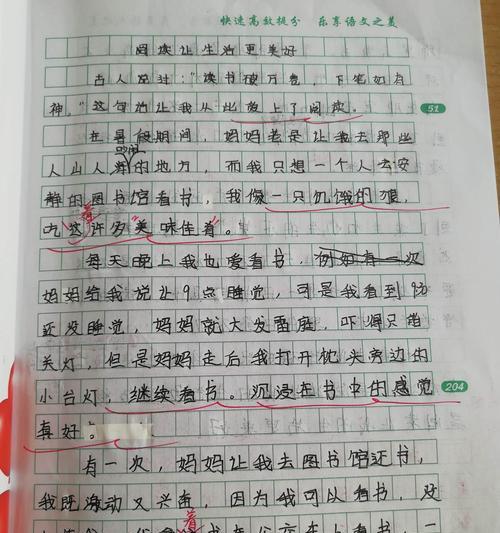 快速高效提分 乐享语文之美
阅读让生活更美好
古人说过:"读书破万卷,下笔如有
神。"这句话让我从此爱上了阅读。
51
在暑假期间,妈妈老是让我去那些
人山人海的地方,而我只想一个人去安
静的图书馆看书,我像一只饥饿的狼,
吃着这许多"美味佳肴"。
每天晚上我也爱看书,例如有一次
妈妈给我说让9点睡觉,可是我看到9
还没睡觉,妈妈就大发雷庭,吓得只能
关灯,但是妈妈走后我打开枕头旁边的
小台灯,继续看书。沉浸在书中的感觉
204
真好。
有一次,妈妈让我去图书馆还书,
我既激动又兴奋,因为我可以看书,还
着
在公交车上看书,一